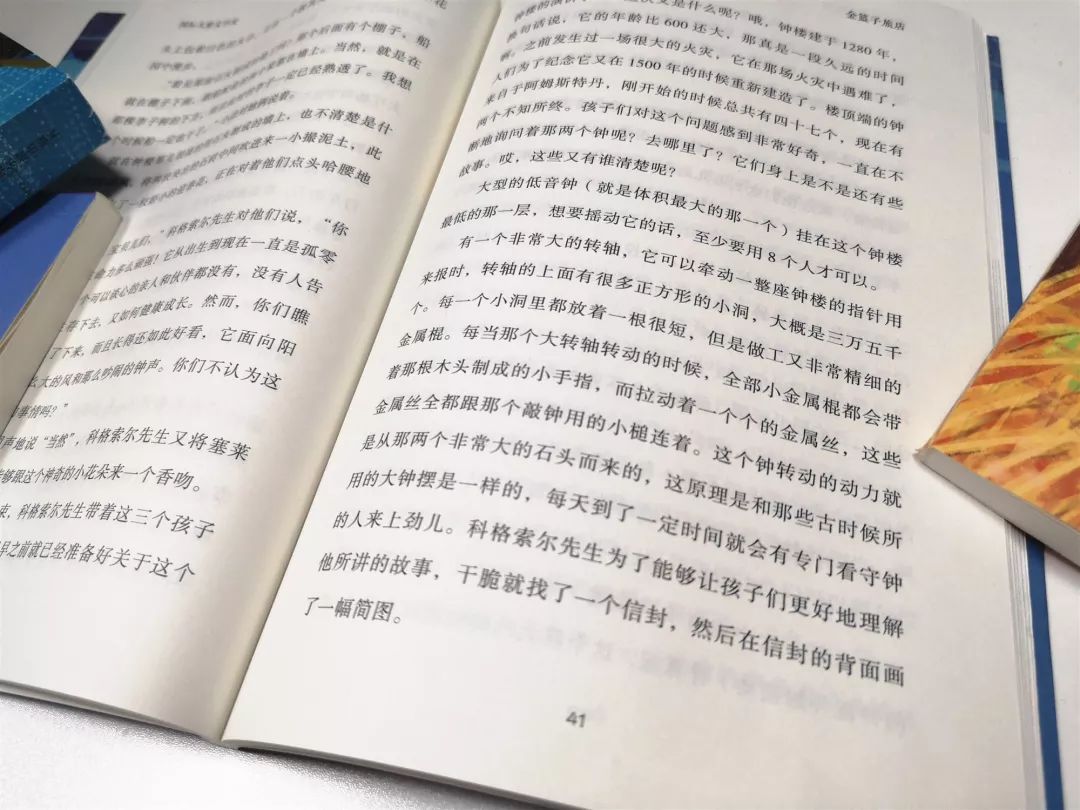 国际大奖文学奖
有个棚子，船
当然，就是在
一定已经熟透了。我想
也不清楚是什
间吹进来一小撮泥土，此
正在对着他们点头哈腰地
科格索尔先生对他们说，“你
它从出生到现在一直是孤零
个可以谈心的亲人和伙伴都没有，没有人告
下去，又如何健康成长。然而，你们瞧
了下来，而且长得还如此好看，它面向阳
么大的风和那么吵闹的钟声。你们不认为这
事情吗？”
声地说“当然”，科格索尔先生又将塞莱
能够跟这个神奇的小花朵来一个香吻。
束，科格索尔先生带着这三个孩子
早之前就已经准备好关于这个
金篮子旅店
又是什么呢？哦，钟楼建于1280年，
换句话说，它的年龄比600还大，那真是一段久远的时间
啊。之前发生过一场很大的火灾，它在那场火灾中遇难了，
人们为了纪念它又在1500年的时候重新建造了。楼顶端的钟
来自于阿姆斯特丹，刚开始的时候总共有四十七个，现在有
两个不知所终。孩子们对这个问题感到非常好奇，一直在不
断地询问着那两个钟呢？去哪里了？它们身上是不是还有些
故事。哎，这些又有谁清楚呢？
大型的低音钟（就是体积最大的那一个）挂在这个钟楼
最低的那一层，想要摇动它的话，至少要用8个人才可以。
有一个非常大的转轴，它可以牵动一整座钟楼的指针用
来报时，转轴的上面有很多正方形的小洞，大概是三万五千
个。每一个小洞里都放着一根很短，但是做工又非常精细的
金属棍。每当那个大转轴转动的时候，全部小金属棍都会带
着那根木头制成的小手指，而拉动着一个个的金属丝，这些
金属丝全都跟那个敲钟用的小槌连着。这个钟转动的动力就
是从那两个非常大的石头而来的，这原理是和那些古时候所
用的大钟摆是一样的，每天到了一定时间就会有专门看守钟
的人来上劲儿。科格索尔先生为了能够让孩子们更好地理解
他所讲的故事，干脆就找了一个信封，然后在信封的背面画
了一幅简图。
41